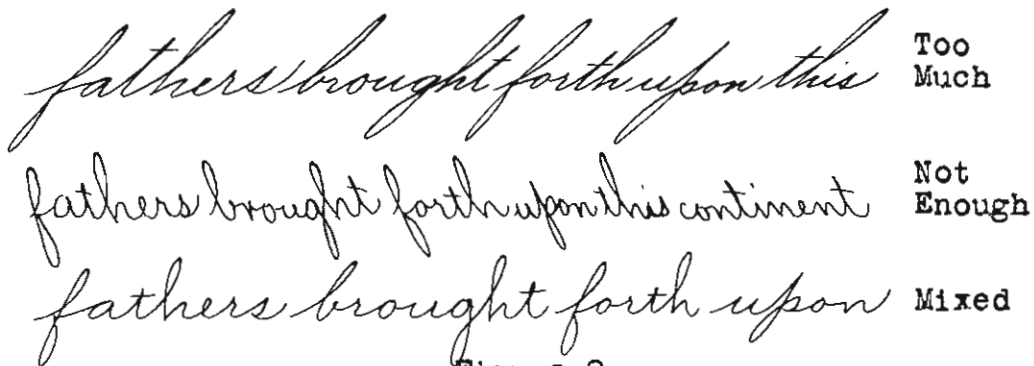 fathers brought forth upon this Too Much
fathers brought forth upon this continent Not Enough
fathers brought forth upon Mixed